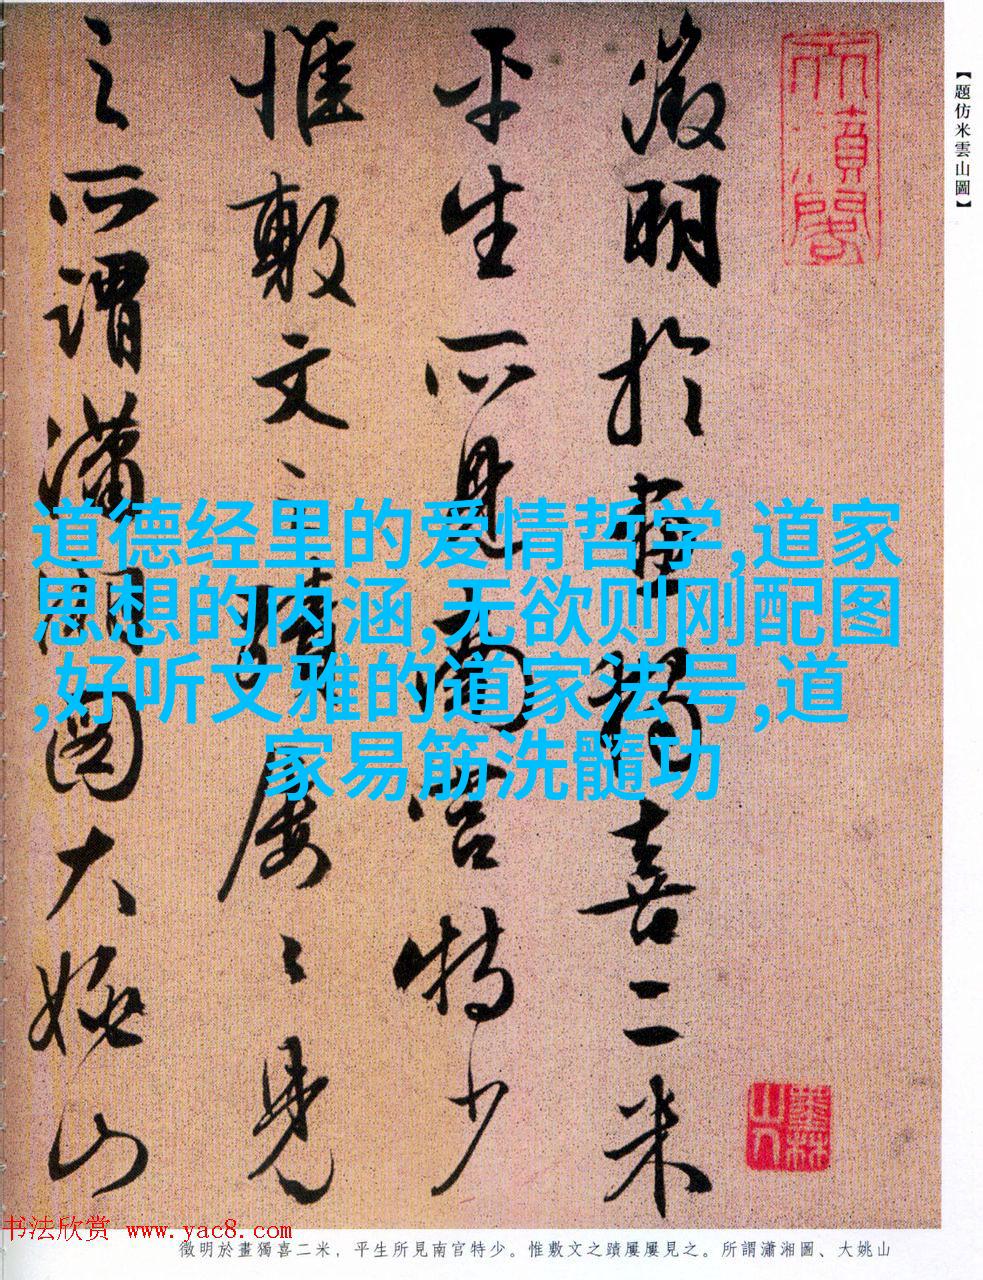 【題仿米雲山圖】
徵明於畫獨喜二米
平生所見南宫特少
惟敷文之蹟屢〻見
之所謂瀟湘圖大姚山
墨林山人
道德经里的爱情哲学,道家
思想的内涵,无欲则刚配图
,好听文雅的道家法号,道
家易筋洗髓功
书法欣赏 www.yac8.com
徵明於畫獨喜二米，平生所見南官特少。惟敷文之蹟屢屢見之。所謂瀟湘圖、大姚山